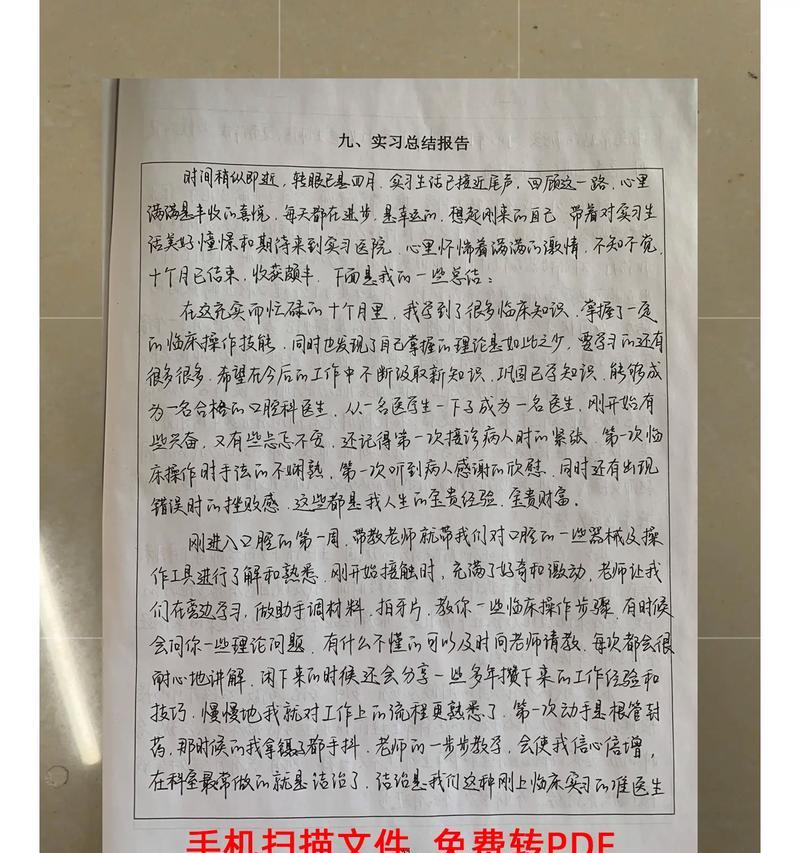 九、实习总结报告
时间稍纵即逝，转眼已是四月，实习生活已接近尾声，回顾这一路，心里
满满是丰收的喜悦，每天都在进步，是幸运的，想起刚来的自己，带着对实习生
活美好憧憬和期待来到实习医院，心里怀惴着满满的激情，不知不觉，
十个月已结束，收获颇丰，下面是我的一些总结：
在这充实而忙碌的十个月里，我学到了很多临床知识，掌握了一定
的临床操作技能，同时也发现了自己掌握的理论是如此之少，要学习的还有
很多很多，希望在今后的工作中不断汲取新知识，巩固已学知识，能够成
为一名合格的口腔科医生，从一名医学生一下子成为一名医生，刚开始有
些兴奋，又有些忐忑不安，还记得第一次接诊病人时的紧张，第一次临
床操作时手法的不娴熟，第一次听到病人感谢的欣慰，同时还有出现
错误时的挫败感，这些都是我人生的宝贵经验，宝贵财富。
刚进入口腔的第一周，带教老师就带我们对口腔的一些器械及操
作工具进行了解和熟悉，刚开始接触时，充满了好奇和激动，老师让我
们在旁边学习，做助手调材料，拍牙片，教你一些临床操作步骤，有时候
会问你一些理论问题，有什么不懂的可以及时向老师请教，每次都会很
耐心地讲解，闲下来的时候还会分享一些多年攒下来的工作经验和
技巧，慢慢地我就对工作上的流程更熟悉了，第一次动手是根管封
药，那时候的我拿镊子都手抖，老师的一步步教学，会使我信心倍增，
在科室最常做的就是洁治了，洁治是我们这种刚上临床实习的准医生
手机扫描文件 免费转PDF